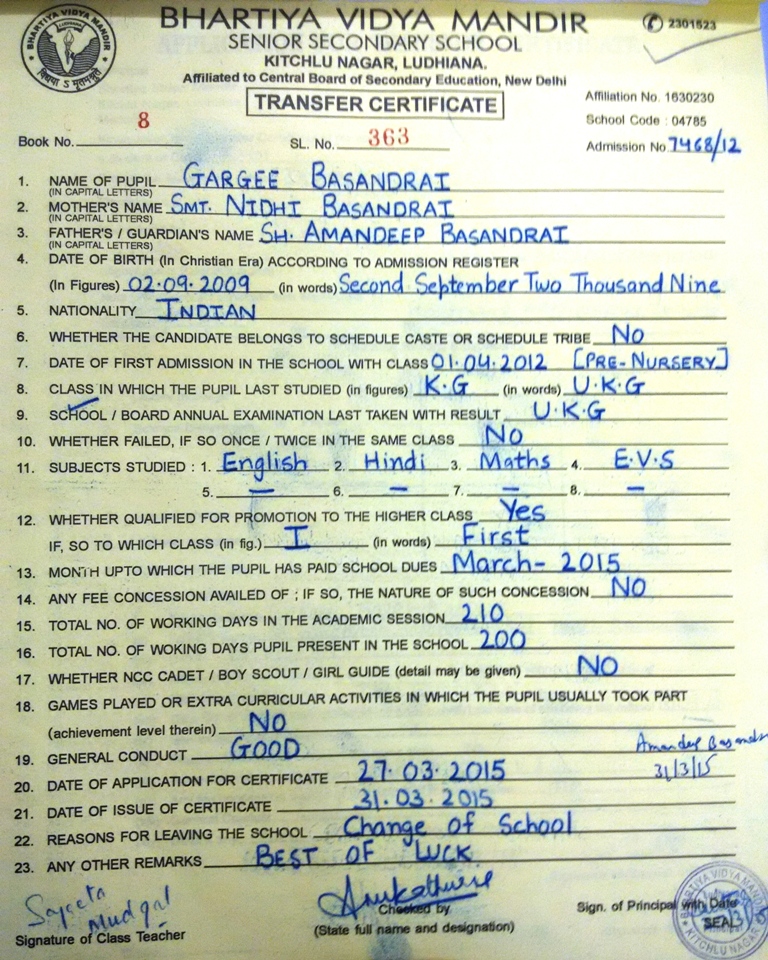 BHARTIYA VIDYA MANDIR
2301523
SENIOR SECONDARY SCHOOL
KITCHLU NAGAR, LUDHIANA.
Affiliated to Central Board of Secondary Education, New Delhi
TRANSFER CERTIFICATE
Affiliation No. 1630230
School Code : 04785
Book No. 8 SL. No. 363 Admission No. 7468/12
1. NAME OF PUPIL GARGEE BASANDRAI
(IN CAPITAL LETTERS)
2. MOTHER'S NAME SMT. NIDHI BASANDRAI
(IN CAPITAL LETTERS)
3. FATHER'S / GUARDIAN'S NAME SH. AMANDEEP BASANDRAI
(IN CAPITAL LETTERS)
4. DATE OF BIRTH (In Christian Era) ACCORDING TO ADMISSION REGISTER
(In Figures) 02.09.2009 (in words) Second September Two Thousand Nine
5. NATIONALITY INDIAN
6. WHETHER THE CANDIDATE BELONGS TO SCHEDULE CASTE OR SCHEDULE TRIBE NO
7. DATE OF FIRST ADMISSION IN THE SCHOOL WITH CLASS 01.04.2012 [PRE-NURSERY]
8. CLASS IN WHICH THE PUPIL LAST STUDIED (in figures) K.G (in words) U.K.G
9. SCHOOL / BOARD ANNUAL EXAMINATION LAST TAKEN WITH RESULT U.K.G
10. WHETHER FAILED, IF SO ONCE / TWICE IN THE SAME CLASS NO
11. SUBJECTS STUDIED : 1. English 2. Hindi 3. Maths 4. E.V.S
5. — 6. — 7. — 8. —
12. WHETHER QUALIFIED FOR PROMOTION TO THE HIGHER CLASS Yes
IF, SO TO WHICH CLASS (in fig.) I (in words) First
13. MONTH UPTO WHICH THE PUPIL HAS PAID SCHOOL DUES March- 2015
14. ANY FEE CONCESSION AVAILED OF ; IF SO, THE NATURE OF SUCH CONCESSION NO
15. TOTAL NO. OF WORKING DAYS IN THE ACADEMIC SESSION 210
16. TOTAL NO. OF WOKING DAYS PUPIL PRESENT IN THE SCHOOL 200
17. WHETHER NCC CADET / BOY SCOUT / GIRL GUIDE (detail may be given) NO
18. GAMES PLAYED OR EXTRA CURRICULAR ACTIVITIES IN WHICH THE PUPIL USUALLY TOOK PART
(achievement level therein) NO
19. GENERAL CONDUCT GOOD
Amandeep
31/3/15
20. DATE OF APPLICATION FOR CERTIFICATE 27.03.2015
21. DATE OF ISSUE OF CERTIFICATE 31.03.2015
22. REASONS FOR LEAVING THE SCHOOL Change of School
23. ANY OTHER REMARKS BEST OF LUCK
Mudgal
Signature of Class Teacher
Checked by
(State full name and designation)
Sign. of Principal with Date
SEAL
BHARTIYA VIDYA MANDIR
KITCHLU NAGAR